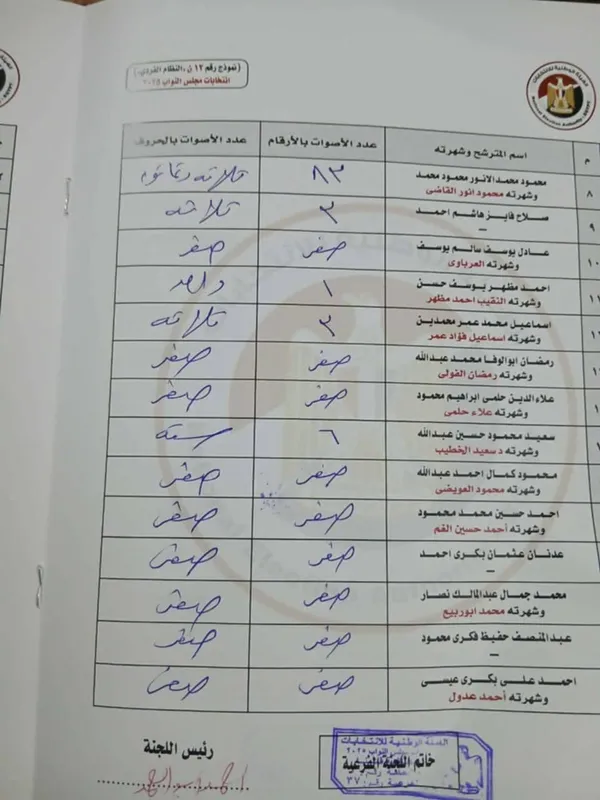 (نموذج رقم ١٢ ن «النظام الفردي»)
انتخابات مجلس النواب ٢٠٢٥
الهيئة الوطنية للانتخابات
م
اسم المترشح وشهرته
عدد الأصوات بالأرقام
عدد الأصوات بالحروف
٨
محمود محمد الانور محمود محمد
وشهرته محمود انور القاضى
٨٣
ثلاثة وثمانون
٩
صلاح فايز هاشم احمد
–
٣
ثلاثة
١٠
عادل يوسف سالم يوسف
وشهرته العرباوى
صفر
صفر
احمد مظهر يوسف حسن
وشهرته النقيب احمد مظهر
١
واحد
اسماعيل محمد عمر محمدين
وشهرته اسماعيل فؤاد عمر
٣
ثلاثة
رمضان ابوالوفا محمد عبدالله
وشهرته رمضان الفولى
صفر
صفر
علاء الدين حلمى ابراهيم محمود
وشهرته علاء حلمى
صفر
صفر
سعيد محمود حسين عبدالله
وشهرته د سعيد الخطيب
٦
ستة
محمود كمال احمد عبدالله
وشهرته محمود العويضى
صفر
صفر
احمد حسين محمد محمود
وشهرته أحمد حسين الغم
صفر
صفر
عدنان عثمان بكرى احمد
–
صفر
صفر
محمد جمال عبدالمالك نصار
وشهرته محمد ابوربيع
صفر
صفر
عبدالمنصف حفيظ فكرى محمود
–
صفر
صفر
احمد على بكرى عيسى
وشهرته أحمد عدول
صفر
صفر
خاتم اللجنة الفرعية
رئيس اللجنة
الهيئة الوطنية للانتخابات